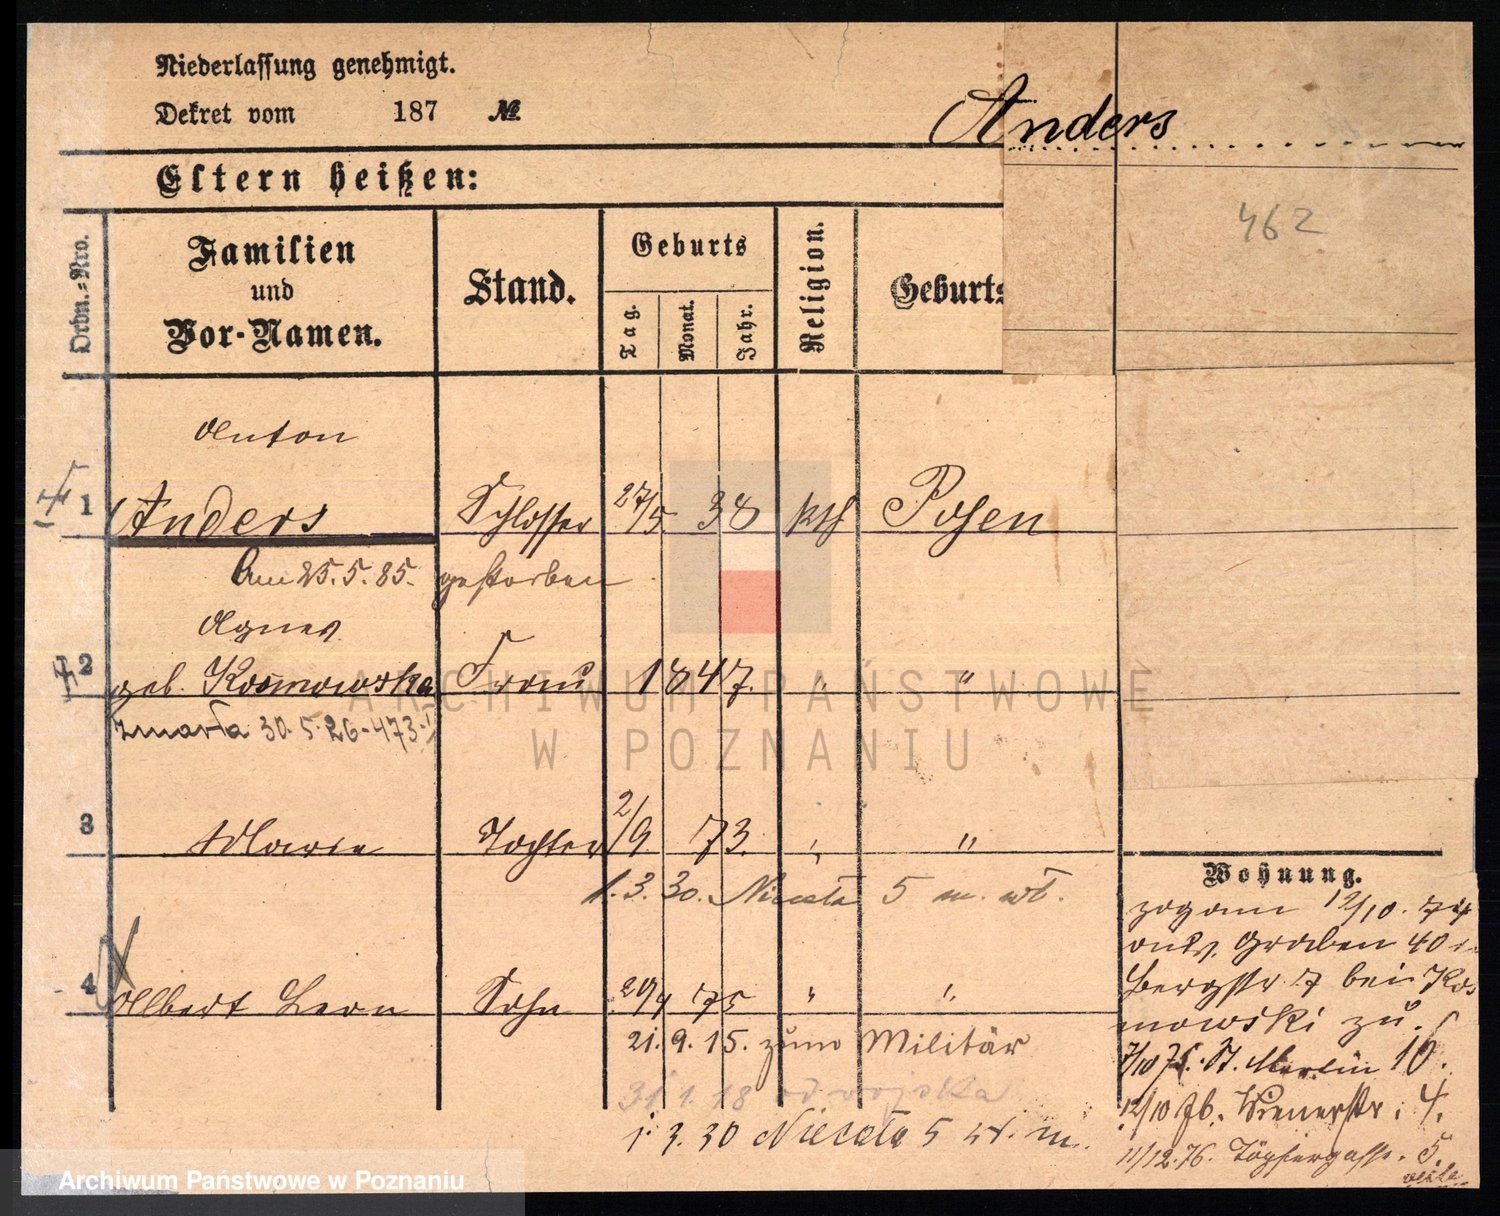 Niederlassung genehmigt.
Dekret vom 187 №
Anders
Eltern heißen:
462
Ordn.-Nro.
Familien
und
Vor-Namen.
Stand.
Geburts
Tag.
Monat.
Jahr.
Religion.
Geburts
Anton
1 Anders Schlosser 27/5 38 kth Posen
Am 25.5.85. gestorben
Agnes
2 geb. Kosmowska Frau 1847. " "
zmarła 30.5.26-473.
3 Marie Tochter 2/9 73. " "
1.3.30. Niecała 5 m.
4 Albert Leon Sohn 29/4 75 " "
21.9.15. zum Militär
31.1.18 od wojska
1.3.30 Niecała 5 m.
Wohnung.
zog am 12/10. 74
Graben 40
Bergstr 7 bei Kos
mowski zu.
7/10 75. St. Martin 16.
12/10 76. Wienerstr. 4.
11/12.76. Töpfergasse. 5.
ARCHIWUM PAŃSTWOWE
W POZNANIU
Archiwum Państwowe w Poznaniu